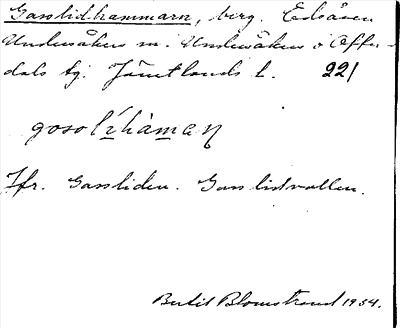 Gåslidhammarn, berg. Edsåsen
Undersåkers sn. Undersåkers o Offer-
dals tg. Jämtlands l. 221
Jfr. Gåsliden. Gåslidvallen.
Bertil Blomstrand 1934.